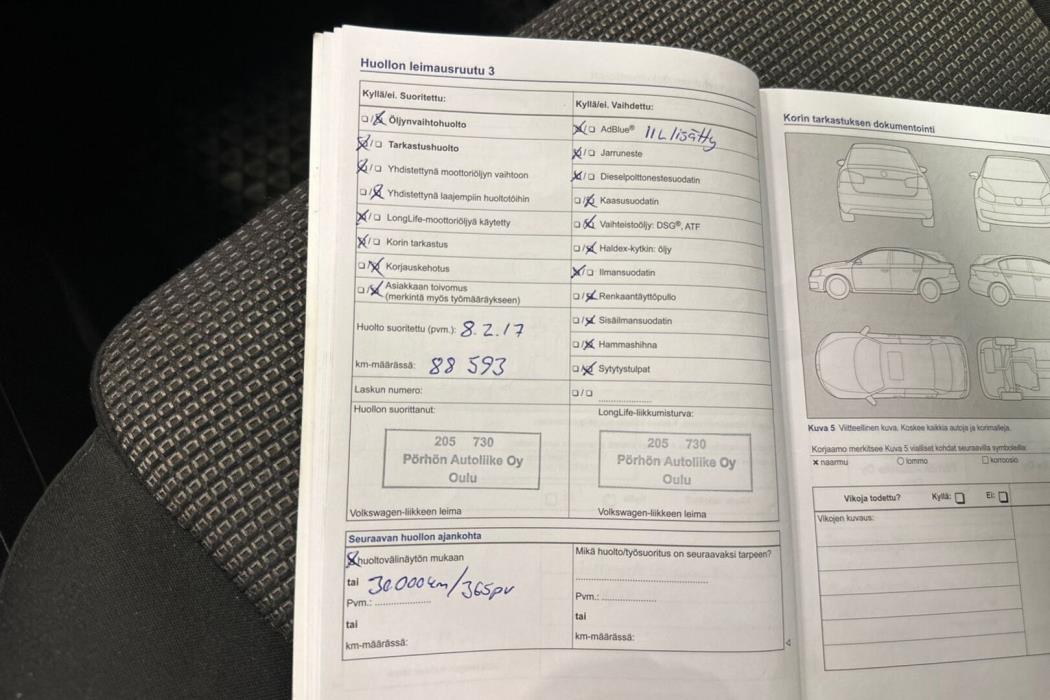 Huollon leimausruutu 3
Kyllä/ei. Suoritettu:
Öljynvaihtohuolto
Tarkastushuolto
Yhdistettynä moottoriöljyn vaihtoon
Yhdistettynä laajempiin huoltotöihin
LongLife-moottoriöljyä käytetty
Korin tarkastus
Korjauskehotus
Asiakkaan toivomus
(merkintä myös työmääräykseen)
Huolto suoritettu (pvm.): 8.2.17
km-määrässä: 88 593
Laskun numero:
Huollon suorittanut:
205 730
Pörhön Autoliike Oy
Oulu
Volkswagen-liikkeen leima
Kyllä/ei. Vaihdettu:
AdBlue® 11L lisätty
Jarruneste
Dieselpolttonestesuodatin
Kaasusuodatin
Vaihteistoöljy: DSG®, ATF
Haldex-kytkin: öljy
Ilmansuodatin
Renkaantäyttöpullo
Sisäilmansuodatin
Hammashihna
Sytytystulpat
LongLife-liikkumisturva:
205 730
Pörhön Autoliike Oy
Oulu
Volkswagen-liikkeen leima
Seuraavan huollon ajankohta
huoltovälinäytön mukaan
tai 30000km/365pv
Pvm.:
tai
km-määrässä:
Mikä huolto/työsuoritus on seuraavaksi tarpeen?
Pvm.:
tai
km-määrässä:
Korin tarkastuksen dokumentointi
Kuva 5 Viitteellinen kuva. Koskee kaikkia autoja ja korimalleja.
Korjaamo merkitsee Kuva 5 vialliset kohdat seuraavilla symboleilla:
x naarmu
lommo
korroosio
Vikoja todettu? Kyllä: Ei:
Vikojen kuvaus: